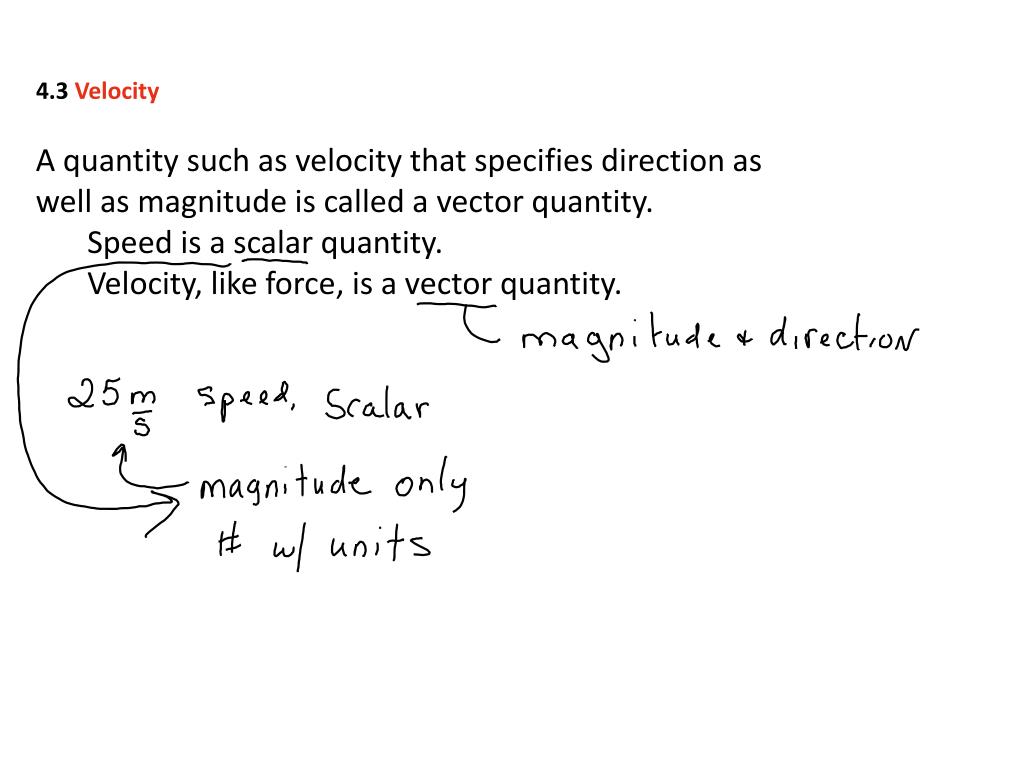 4.3 Velocity
A quantity such as velocity that specifies direction as
well as magnitude is called a vector quantity.
Speed is a scalar quantity.
Velocity, like force, is a vector quantity.
magnitude & direction
25 m/s speed, scalar
magnitude only
# w/ units